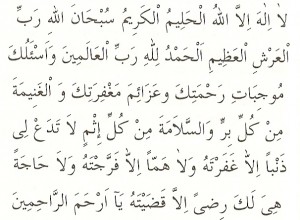 لاَ اِلٰهَ اِلاَّ اللهُ الْحَلِيمُ الْكَرِيمُ سُبْحَانَ اللهِ رَبِّ
الْعَرْشِ الْعَظِيمِ اَلْحَمْدُ لِلّٰهِ رَبِّ الْعَالَمِينَ وَاَسْئَلُكَ
مُوجِبَاتِ رَحْمَتِكَ وَعَزَائِمَ مَغْفِرَتِكَ وَ الْغَنِيمَةَ
مِنْ كُلِّ بِرٍّ وَالسَّلاَمَةَ مِنْ كُلِّ اِثْمٍ لاَ تَدَعْ لِى
ذَنْبًا اِلاَّ غَفَرْتَهُ وَلاَ هَمًّا اِلاَّ فَرَّجْتَهُ وَلاَ حَاجَةً
هِىَ لَكَ رِضىً اِلاَّ قَضَيْتَهُ يَآ اَرْحَمَ الرَّاحِمِينَ